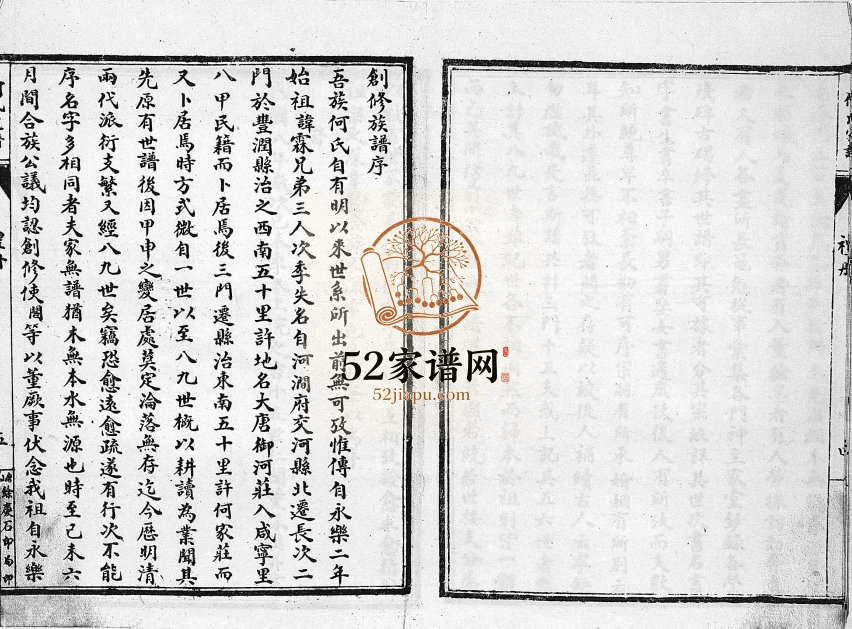 創修族譜序
吾族何氏自有明以來世系所出前無可攷惟傳自永樂二年
始祖諱霖兄弟三人次季失名自河澗府交河縣北遷長次二
門於豐潤縣治之西南五十里許地名大唐御河莊入咸寧里
八甲民籍而卜居焉後三門遷縣治東南五十里許何家莊而
又卜居焉時方式微自一世以至八九世概以耕讀為業聞其
先原有世譜後因甲申之變居處莫定淪落無存迄今歷明清
兩代派衍支繁又經八九世矣竊恐愈遠愈疏遂有行次不能
序名字多相同者夫家無譜猶木無本水無源也時至己未六
月間合族公議均認創修使閣等以董厥事伏念我祖自永樂
餘慶石印局印
52家谱网
52jiapu.com